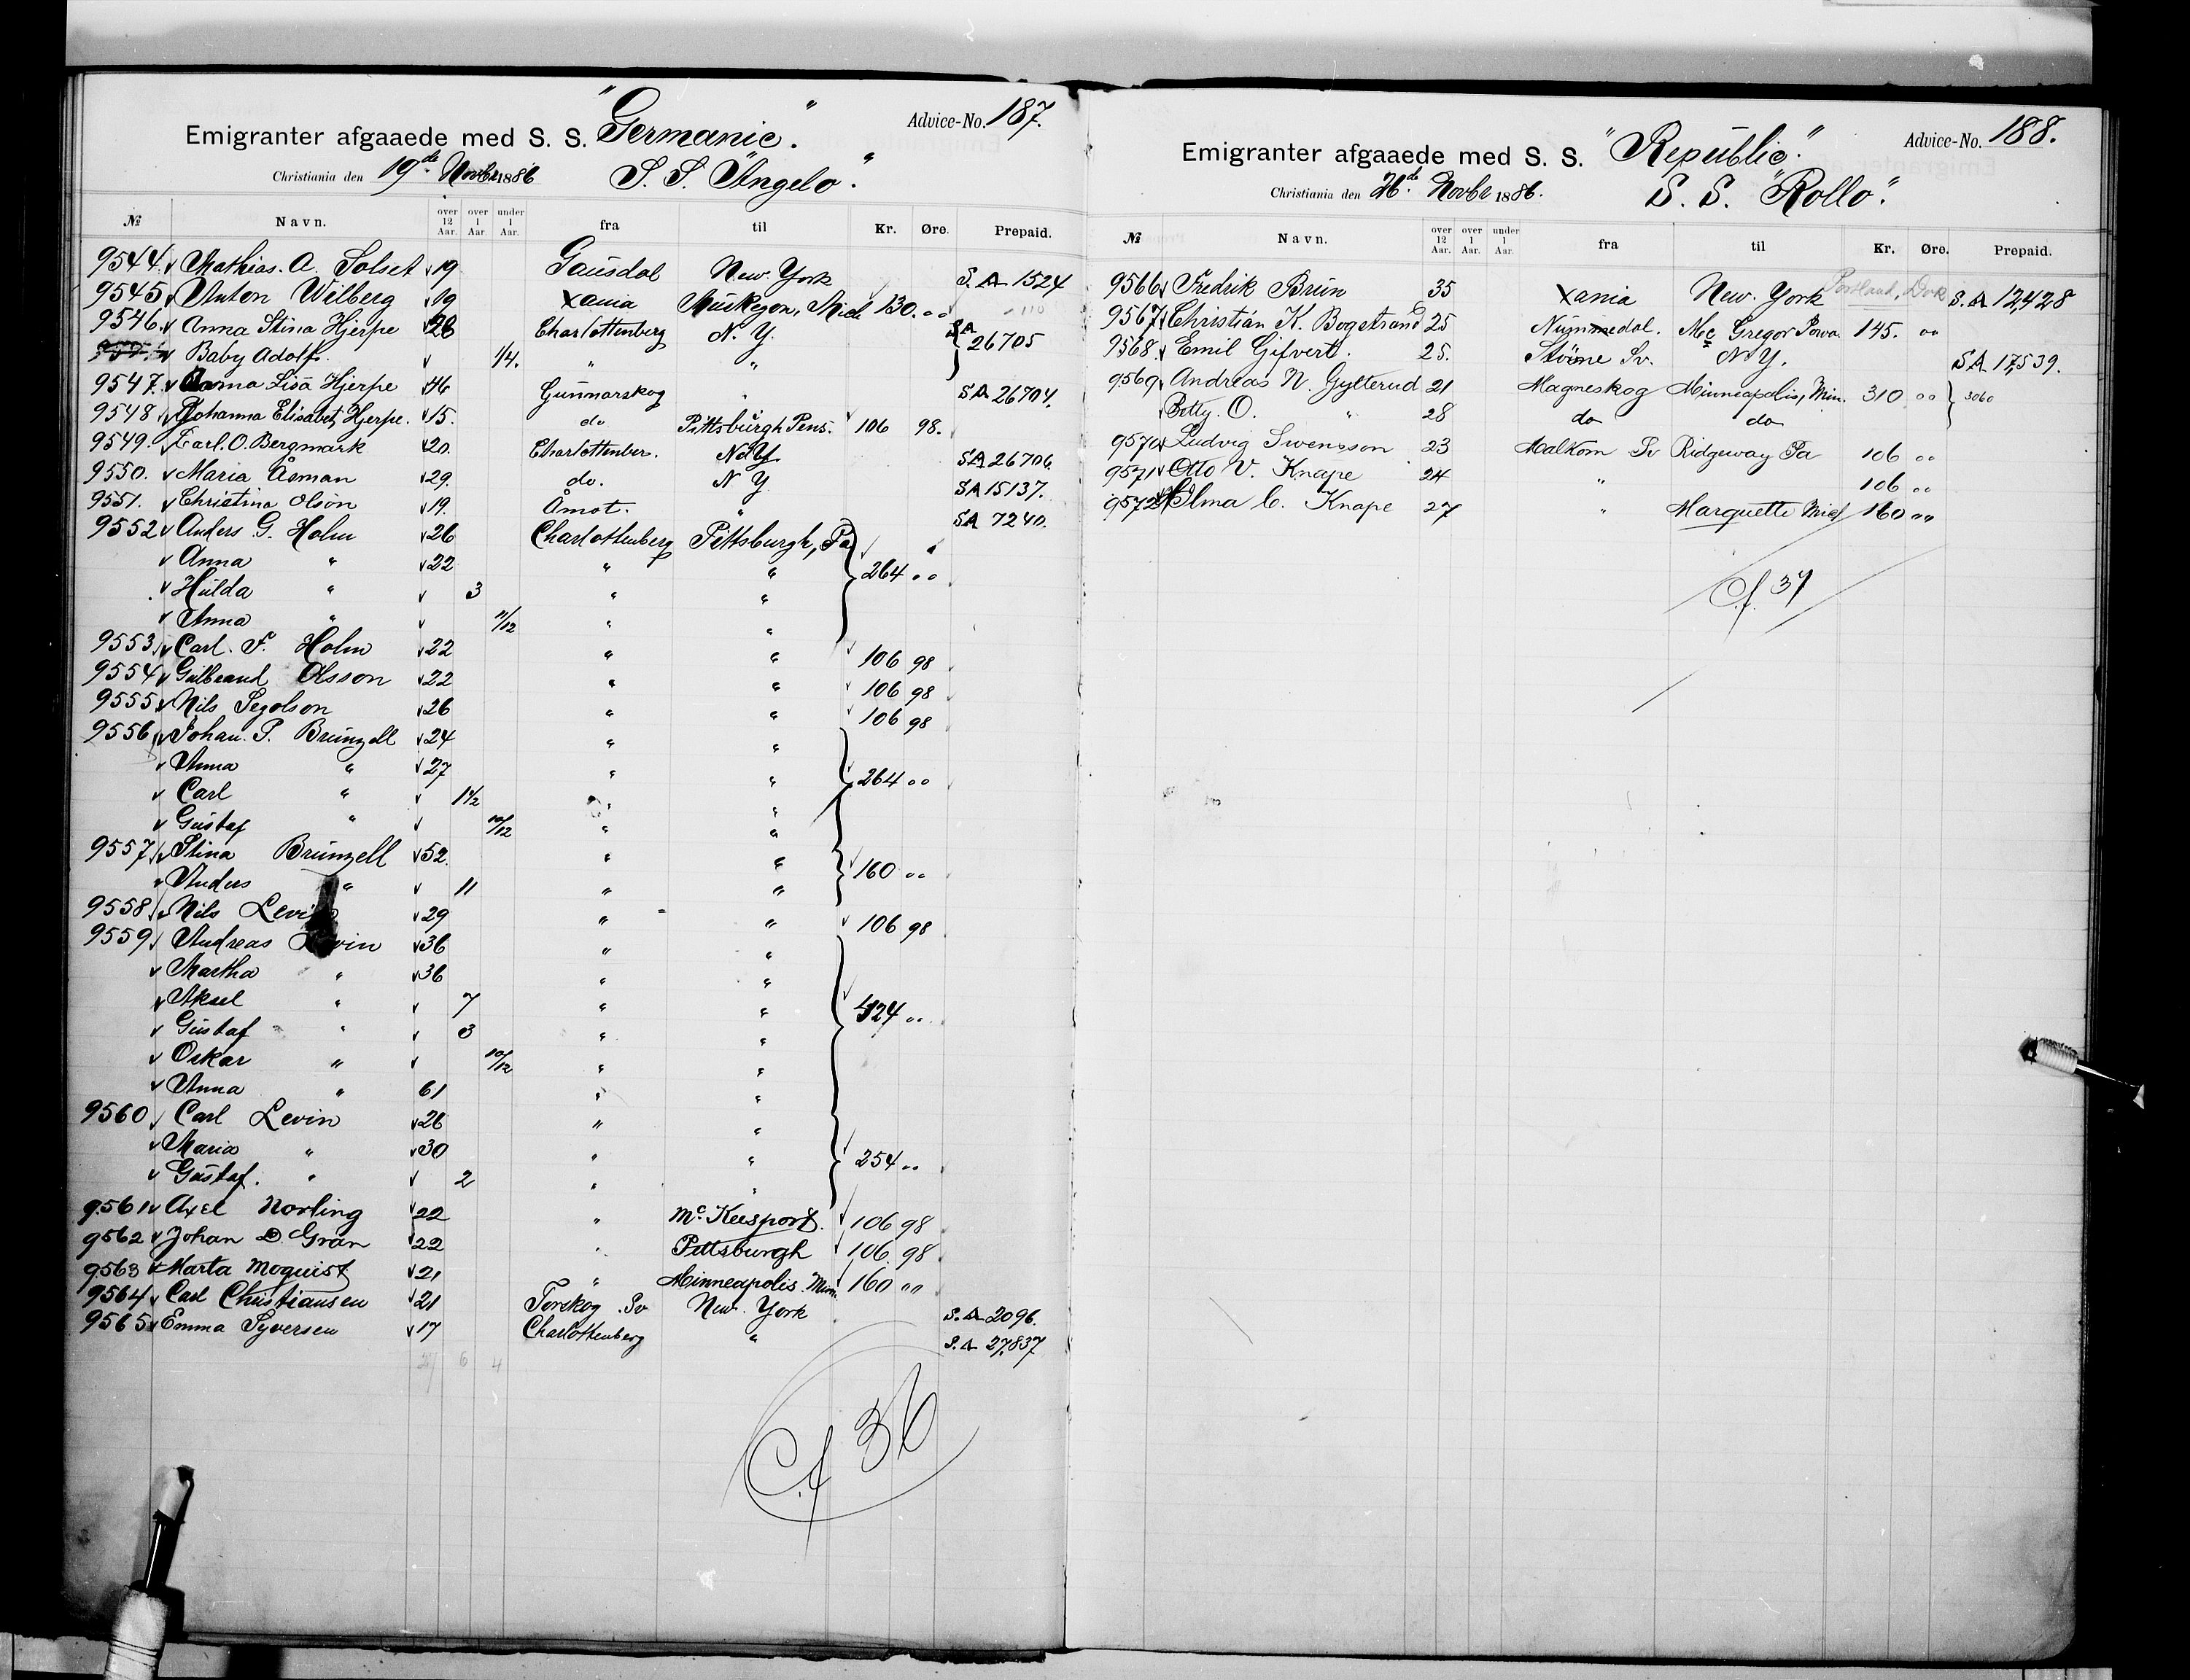 Emigranter afgaaede med S. S. "Germanic". Advice-No. 187.
Christiania den 19de Novbr 1886 S. S. "Angelo".
№ Navn. over 12 Aar. over 1 Aar. under 1 Aar. fra til Kr. Øre. Prepaid.
9544 Mathias. A. Solset 19 Gausdal New York S. A 1524
9545 Anton Wilberg 19 Xania Muskegon, Mich 130. 00
9546. Anna Stina Hjerpe 28 Charlottenberg N. Y. SA 26705
Baby Adolf. 1/4. " "
9547. Anna Lisa Hjerpe 46 Gunnarskog " SA 26704.
9548 Johanna Elisabet Hjerpe. 15. do Pittsburgh Pens. 106 98.
9549. Carl. O. Bergmark 20. Charlottenber. N Y SA 26706.
9550. Maria Åsman 29. do. N Y SA 15137.
9551. Christina Olson 19. Åmot. " SA 7240.
9552 Anders G. Holm 26 Charlottenberg Pittsburgh, Pa
Anna " 22 " " 264 00
Hulda " 3 " "
Anna " 11/12 " "
9553 Carl. F. Holm 22 " " 106 98
9554 Gulbrand Olsson 22 " " 106 98
9555 Nils Segolson 26 " " 106 98
9556 Johan. P. Brunzell 24 " "
Anna " 27 " " 264 00
Carl " 1 1/2 " "
Gustaf " 10/12 " "
9557 Stina Brunzell 52. " " 160 00
Anders " 11 " "
9558 Nils Levin 29 " " 106 98
9559 Andreas Levin 36 " "
Martha " 36 " "
Aksel " 7 " " 424 00
Gustaf " 3 " "
Oskar " 10/12 " "
Anna " 61 " "
9560 Carl Levin 26 " "
Maria " 30 " " 254 00
Gustaf. " 2 " "
9561 Axel Norling 22 " Mc Keesport. 106 98
9562 Johan D. Grän 22 " Pittsburgh 106. 98
9563 Marta Moquist 21 " Minneapolis. Minn. 160 00
9564 Carl Christiansen 21 Torskog. Sv New. York S. A 2096.
9565 Emma Syversen 17 Charlottenberg " S. A 27,837
27 6 4
Cf 36
Emigranter afgaaede med S. S. "Republic". Advice-No. 188.
Christiania den 26de Novbr 1886. S. S. "Rollo".
№ Navn. over 12 Aar. over 1 Aar. under 1 Aar. fra til Kr. Øre. Prepaid.
9566 Fredrik Brun 35 Xania New. York Portland, S. A 12,428
9567 Christian K. Bogstrand 25 Nummedal. Mc Gregor Iowa 145. 00
9568 Emil Gifvert. 25. Sv. N. Y. SA 17,539.
9569 Andreas N. Gylterud 21 Magneskog Minneapolis, Min. 310 00 3060
Betty. O. " 28 do do
9570 Ludvig Swensson 23 Malkom Sv Ridgeway Pa 106 00
9571 Otto V. Knape 24 " 106 00
9572 Elma C. Knape 27 " Marquette Mich 160 00
Cf. 37